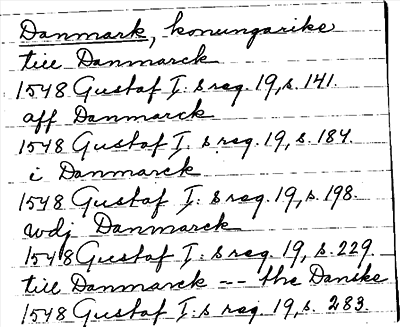 Danmark, konungarike
till Danmarck
1548 Gustaf I:s reg. 19, s. 141.
aff Danmarck
1548 Gustaf I:s reg. 19, s. 184.
i Danmarck
1548 Gustaf I:s reg. 19, s. 198.
wdj Danmarck
1548 Gustaf I:s reg. 19, s. 229
till Danmarck -- the Danske
1548 Gustaf I:s reg. 19, s. 283.